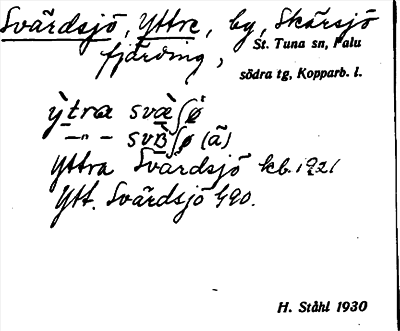 Svärdsjö, Yttre, by, Skärsjö
fjärding, St. Tuna sn, Falu
södra tg, Kopparb. l.
ỳtra svæ̀ʃø
—"— svB̀ʃø (ã)
Yttra Svärdsjö kb. 1921
Ytt. Svärdsjö G90.
H. Ståhl 1930